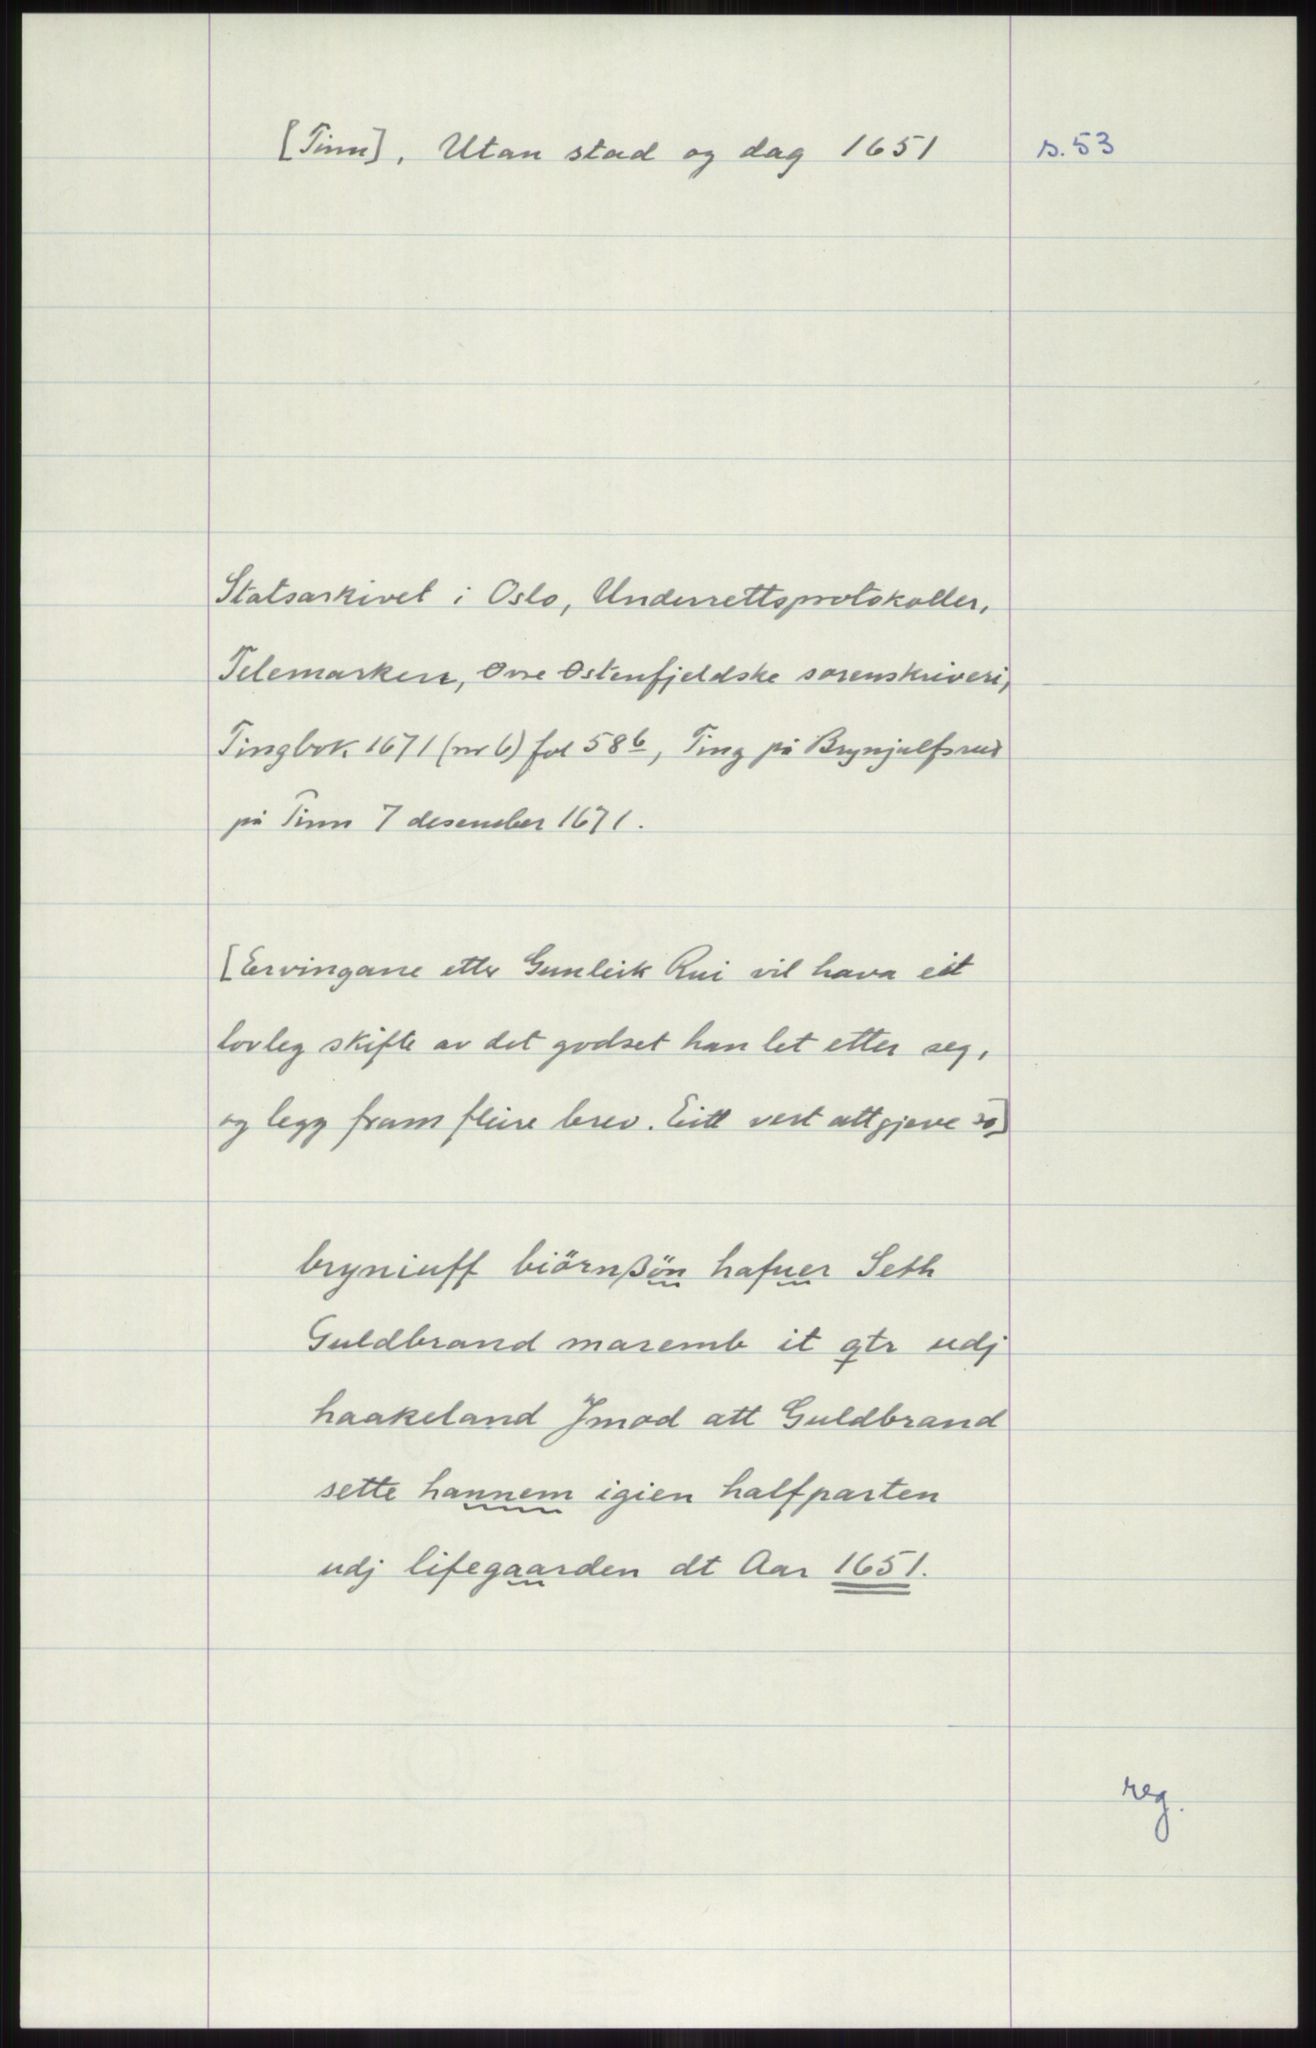 [Tinn], Utan stad og dag 1651 s. 53
Statsarkivet i Oslo, Underrettsprotokoller,
Telemarken, Øvre Østenfjeldske sorenskriveri,
Tingbok 1671 (nr 6) fol 58 b, Ting på Brynjulfsrud
på Tinn 7 desember 1671.
[Ervingane etter Gunleik Rui vil hava eit
lovleg skifte av det godset han let etter seg,
og legg fram fleire brev. Eitt vert attgjeve so]
bryniuff biörnßön hafuer Seth
Guldbrand maremb it qtr udj
haakeland Jmod att Guldbrand
sette hannem igien halfparten
udj lifegaarden dt Aar 1651.
reg.